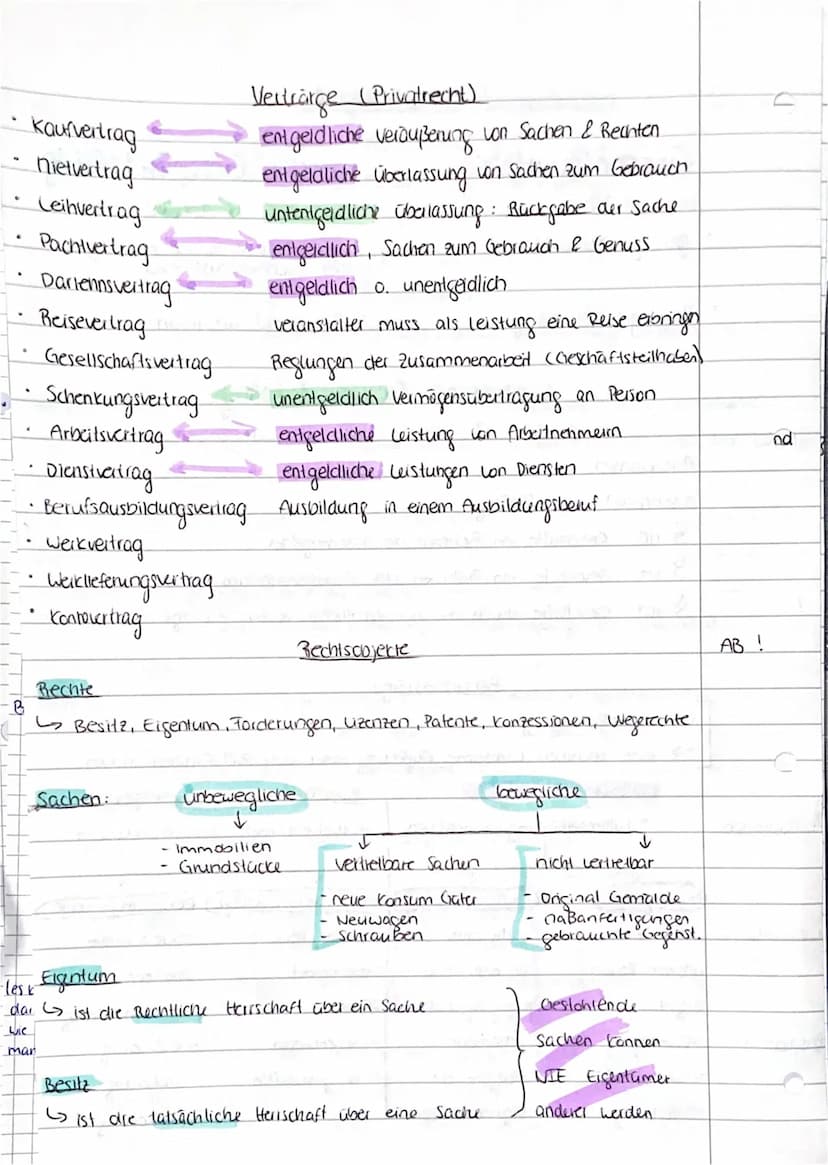 Verträrge (Privatrecht)
· Kaufvertrag entgeldliche Veräußerung von Sachen & Rechten
· Mietvertrag entgeldliche Überlassung von Sachen zum Gebrauch
· Leihvertrag untentgeldliche Überlassung: Rückgabe der Sache
· Pachtvertrag entgeldlich, Sachen zum Gebrauch & Genuss
· Darlehnsvertrag entgeldlich o. unentgeldlich
· Reisevertrag Veranstalter muss als Leistung eine Reise erbringen
· Gesellschaftsvertrag Reglungen der Zusammenarbeit (Geschäftsteilhaber)
· Schenkungsvertrag unentgeldlich Vermögensübertragung an Person
· Arbeitsvertrag entgeldliche Leistung von Arbeitnehmern
nd
· Dienstvertrag entgeldliche Leistungen von Diensten
· Berufsausbildungsvertrag Ausbildung in einem Ausbildungsberuf
· Werkvertrag
· Werklieferungsvertrag
· Kontovertrag
Rechtsobjekte AB !
Rechte
B
↳ Besitz, Eigentum, Forderungen, Lizenzen, Patente, Konzessionen, Wegerechte
Sachen: unbewegliche bewegliche
- Immobilien
- Grundstücke
vertretbare Sachen nicht vertretbar
- neue Konsum Güter - Original Gemälde
- Neuwagen - Maßanfertigungen
- Schrauben - gebrauchte Gegenst.
Eigentum
↳ ist die Rechtliche Herrschaft über ein Sache
Besitz
↳ ist die tatsächliche Herrschaft über eine Sache
Gestohlende
Sachen können
NIE Eigentümer
anderer werden
man